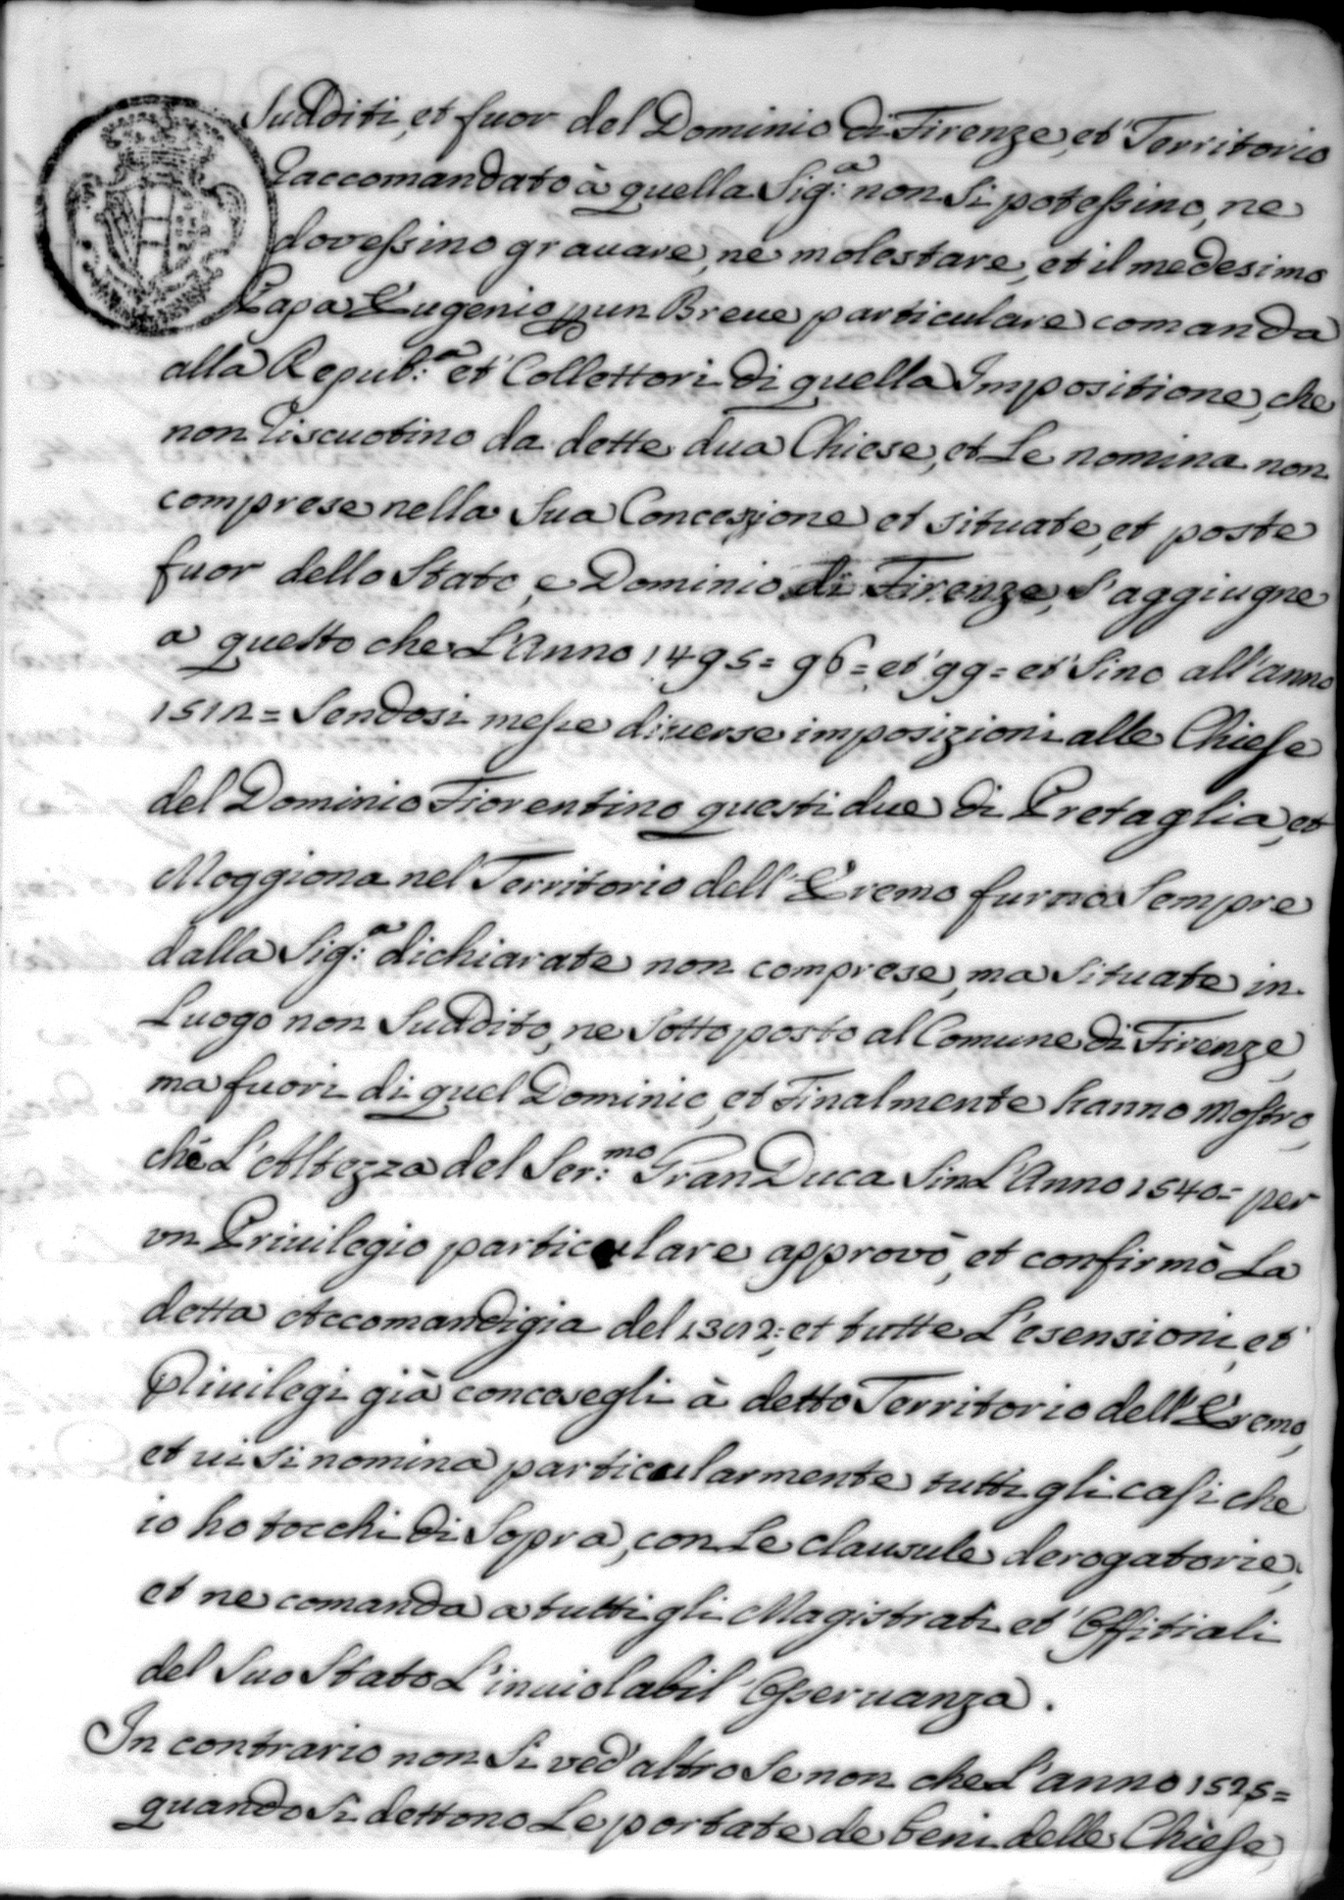 Sudditi, et fuor del Dominio di Firenze, et Territorio
Raccomandato à quella Sig:ª non si potessino, ne
dovessino grauare, ne molestare, et il medesimo
Papa Eugenio p un Breue particulare comanda
alla Repub:ª et Collettori di quella Impositione, che
non Riscuotino da dette dua Chiese, et Le nomina non
comprese nella Sua Concezione et situate, et poste
fuor dello Stato, e Dominio di Firenze, S'aggiugne
a questo che L'Anno 1495= 96= et 99= et Sino all'anno
1512= Sendosi messe diuerse imposizioni alle Chiese
del Dominio Fiorentino questi due di Pretaglia, et
Moggiona nel Territorio dell'Eremo furno Sempre
dalla Sig:ª dichiarate non comprese, ma Situate in
Luogo non Suddito, ne Sottoposto al Comune di Firenze,
ma fuori di quel Dominio, et Finalmente hanno Mostro,
chè L'Altezza del Ser:mo Gran Duca Sin L'Anno 1540= per
un Priuilegio particulare approvò, et confirmò La
detta Accomandigia del 1382= et tutte L'esensioni, et
Priuilegi già concesegli à detto Territorio dell'Eremo,
et ui si nomina particularmente tutti gli casi che
io ho tocchi di Sopra, con Le clausule derogatorie,
et ne comanda a tutti gli Magistrati et Offitiali
del Suo Stato L'inuiolabil'Osseruanza.
In contrario non Si ved'altro Se non che L'anno 1525=
quando si dettono Le portate de beni delle Chiese,